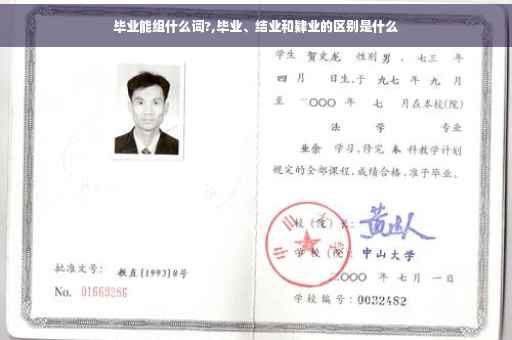 毕业能组什么词?,毕业、结业和肄业的区别是什么
学生 贺文龙 性别 男 、七三 年
四 月 日生,于 九七 年 九 月
至 二〇〇〇 年 七 月在本校(院)
法 学 专业
业余 学习,修完 本 科教学计划
规定的全部课程,成绩合格,准予毕业。
校(院)长:
学校(院): 中山大学
二〇〇〇 年 七 月 一 日
学校编号: 0032482
批准文号: 教直[1993]8号
No. 01663286